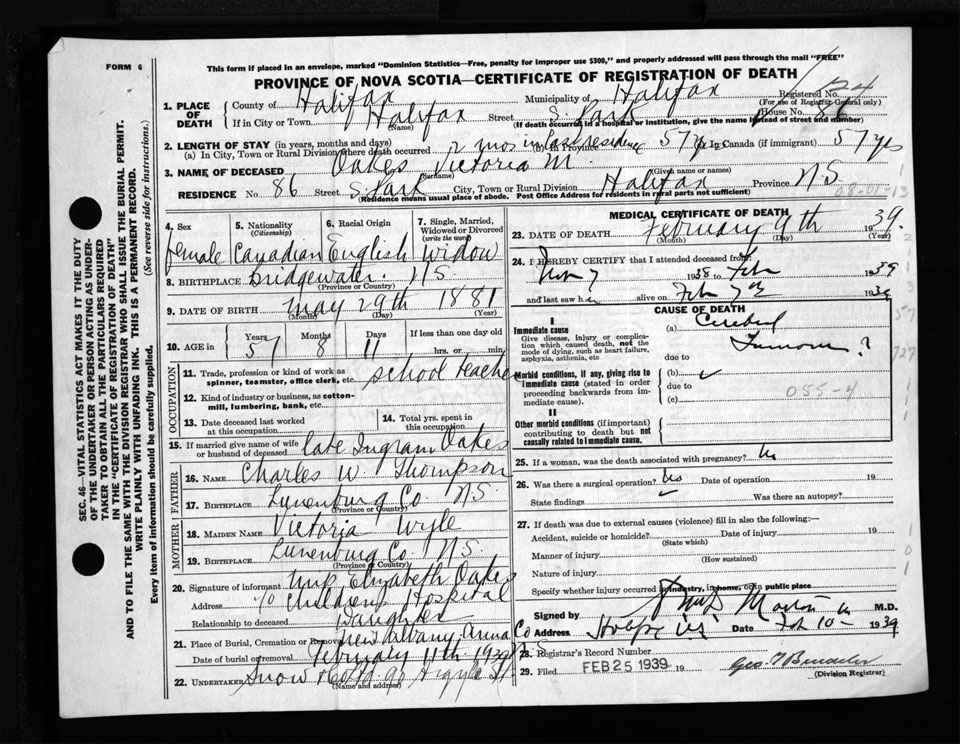 FORM 6
This form if placed in an envelope, marked "Dominion Statistics—Free, penalty for improper use $300," and properly addressed will pass through the mail "FREE"
PROVINCE OF NOVA SCOTIA—CERTIFICATE OF REGISTRATION OF DEATH
Registered No.
(For use of Registrar-General only)
1. PLACE OF DEATH
County of Halifax Municipality of Halifax
If in City or Town Halifax Street S. Park House No. 86
(Name) (If death occurred in a hospital or institution, give the name instead of street and number)
2. LENGTH OF STAY (in years, months and days)
(a) In City, Town or Rural Division where death occurred 2 mos in last residence (b) In Province 57 yrs (c) In Canada (if immigrant) 57 yrs
3. NAME OF DECEASED Oakes Victoria M.
(Surname) (Given name or names)
RESIDENCE No. 86 Street S. Park City, Town or Rural Division Halifax Province N.S
(Residence means usual place of abode. Post Office Address for residents in rural parts not sufficient)
08-01-13
4. Sex female
5. Nationality (Citizenship) Canadian
6. Racial Origin English
7. Single, Married, Widowed or Divorced (write the word) Widow
8. BIRTHPLACE Bridgewater N.S
(Province or Country)
9. DATE OF BIRTH May 29th 1881
(Month) (Day) (Year)
10. AGE in Years 57 Months 8 Days 11 If less than one day old hrs. or min.
OCCUPATION
11. Trade, profession or kind of work as spinner, teamster, office clerk, etc. School teacher
12. Kind of industry or business, as cotton-mill, lumbering, bank, etc.
13. Date deceased last worked at this occupation
14. Total yrs. spent in this occupation
15. If married give name of wife or husband of deceased late Ingram Oakes
FATHER
16. NAME Charles W. Thompson
17. BIRTHPLACE Lunenburg Co. N.S.
(Province or Country)
MOTHER
18. MAIDEN NAME Victoria Wyle
19. BIRTHPLACE Lunenburg Co. N.S.
(Province or Country)
20. Signature of informant Elizabeth Oakes
Address Childrens Hospital
Relationship to deceased Daughter
21. Place of Burial, Cremation or Removal New Albany Anna Co
Date of burial or removal February 11th 1939
22. UNDERTAKER Snow & Co. 90 Argyle St.
(Name and address)
MEDICAL CERTIFICATE OF DEATH
23. DATE OF DEATH February 9th 1939.
(Month) (Day) (Year)
24. I HEREBY CERTIFY that I attended deceased from:
Nov 7 1938 to Feb 1939
and last saw her alive on Feb 7th 1939
CAUSE OF DEATH
I
Immediate cause
Give disease, injury or complication which caused death, not the mode of dying, such as heart failure, asphyxia, asthenia, etc
(a) Cerebral Tumour?
due to
Morbid conditions, if any, giving rise to immediate cause (stated in order proceeding backwards from immediate cause).
(b)
due to
(c)
055-4
II
Other morbid conditions (if important) contributing to death but not causally related to immediate cause.
25. If a woman, was the death associated with pregnancy? No
26. Was there a surgical operation? Date of operation 19
State findings Was there an autopsy?
27. If death was due to external causes (violence) fill in also the following:—
Accident, suicide or homicide? Date of injury 19
(State which)
Manner of injury
(How sustained)
Nature of injury
Specify whether injury occurred in industry, in home, or in public place
Signed by M.D.
Address Date Feb 10— 1939
28. Registrar's Record Number
29. Filed FEB 25 1939 19
(Division Registrar)
SEC. 46.—VITAL STATISTICS ACT MAKES IT THE DUTY
OF THE UNDERTAKER OR PERSON ACTING AS UNDER-
TAKER TO OBTAIN ALL THE PARTICULARS REQUIRED
IN THE "CERTIFICATE OF REGISTRATION OF DEATH"
AND TO FILE THE SAME WITH THE DIVISION REGISTRAR WHO SHALL ISSUE THE BURIAL PERMIT.
WRITE PLAINLY WITH UNFADING INK. THIS IS A PERMANENT RECORD.
Every item of information should be carefully supplied. (See reverse side for instructions.)